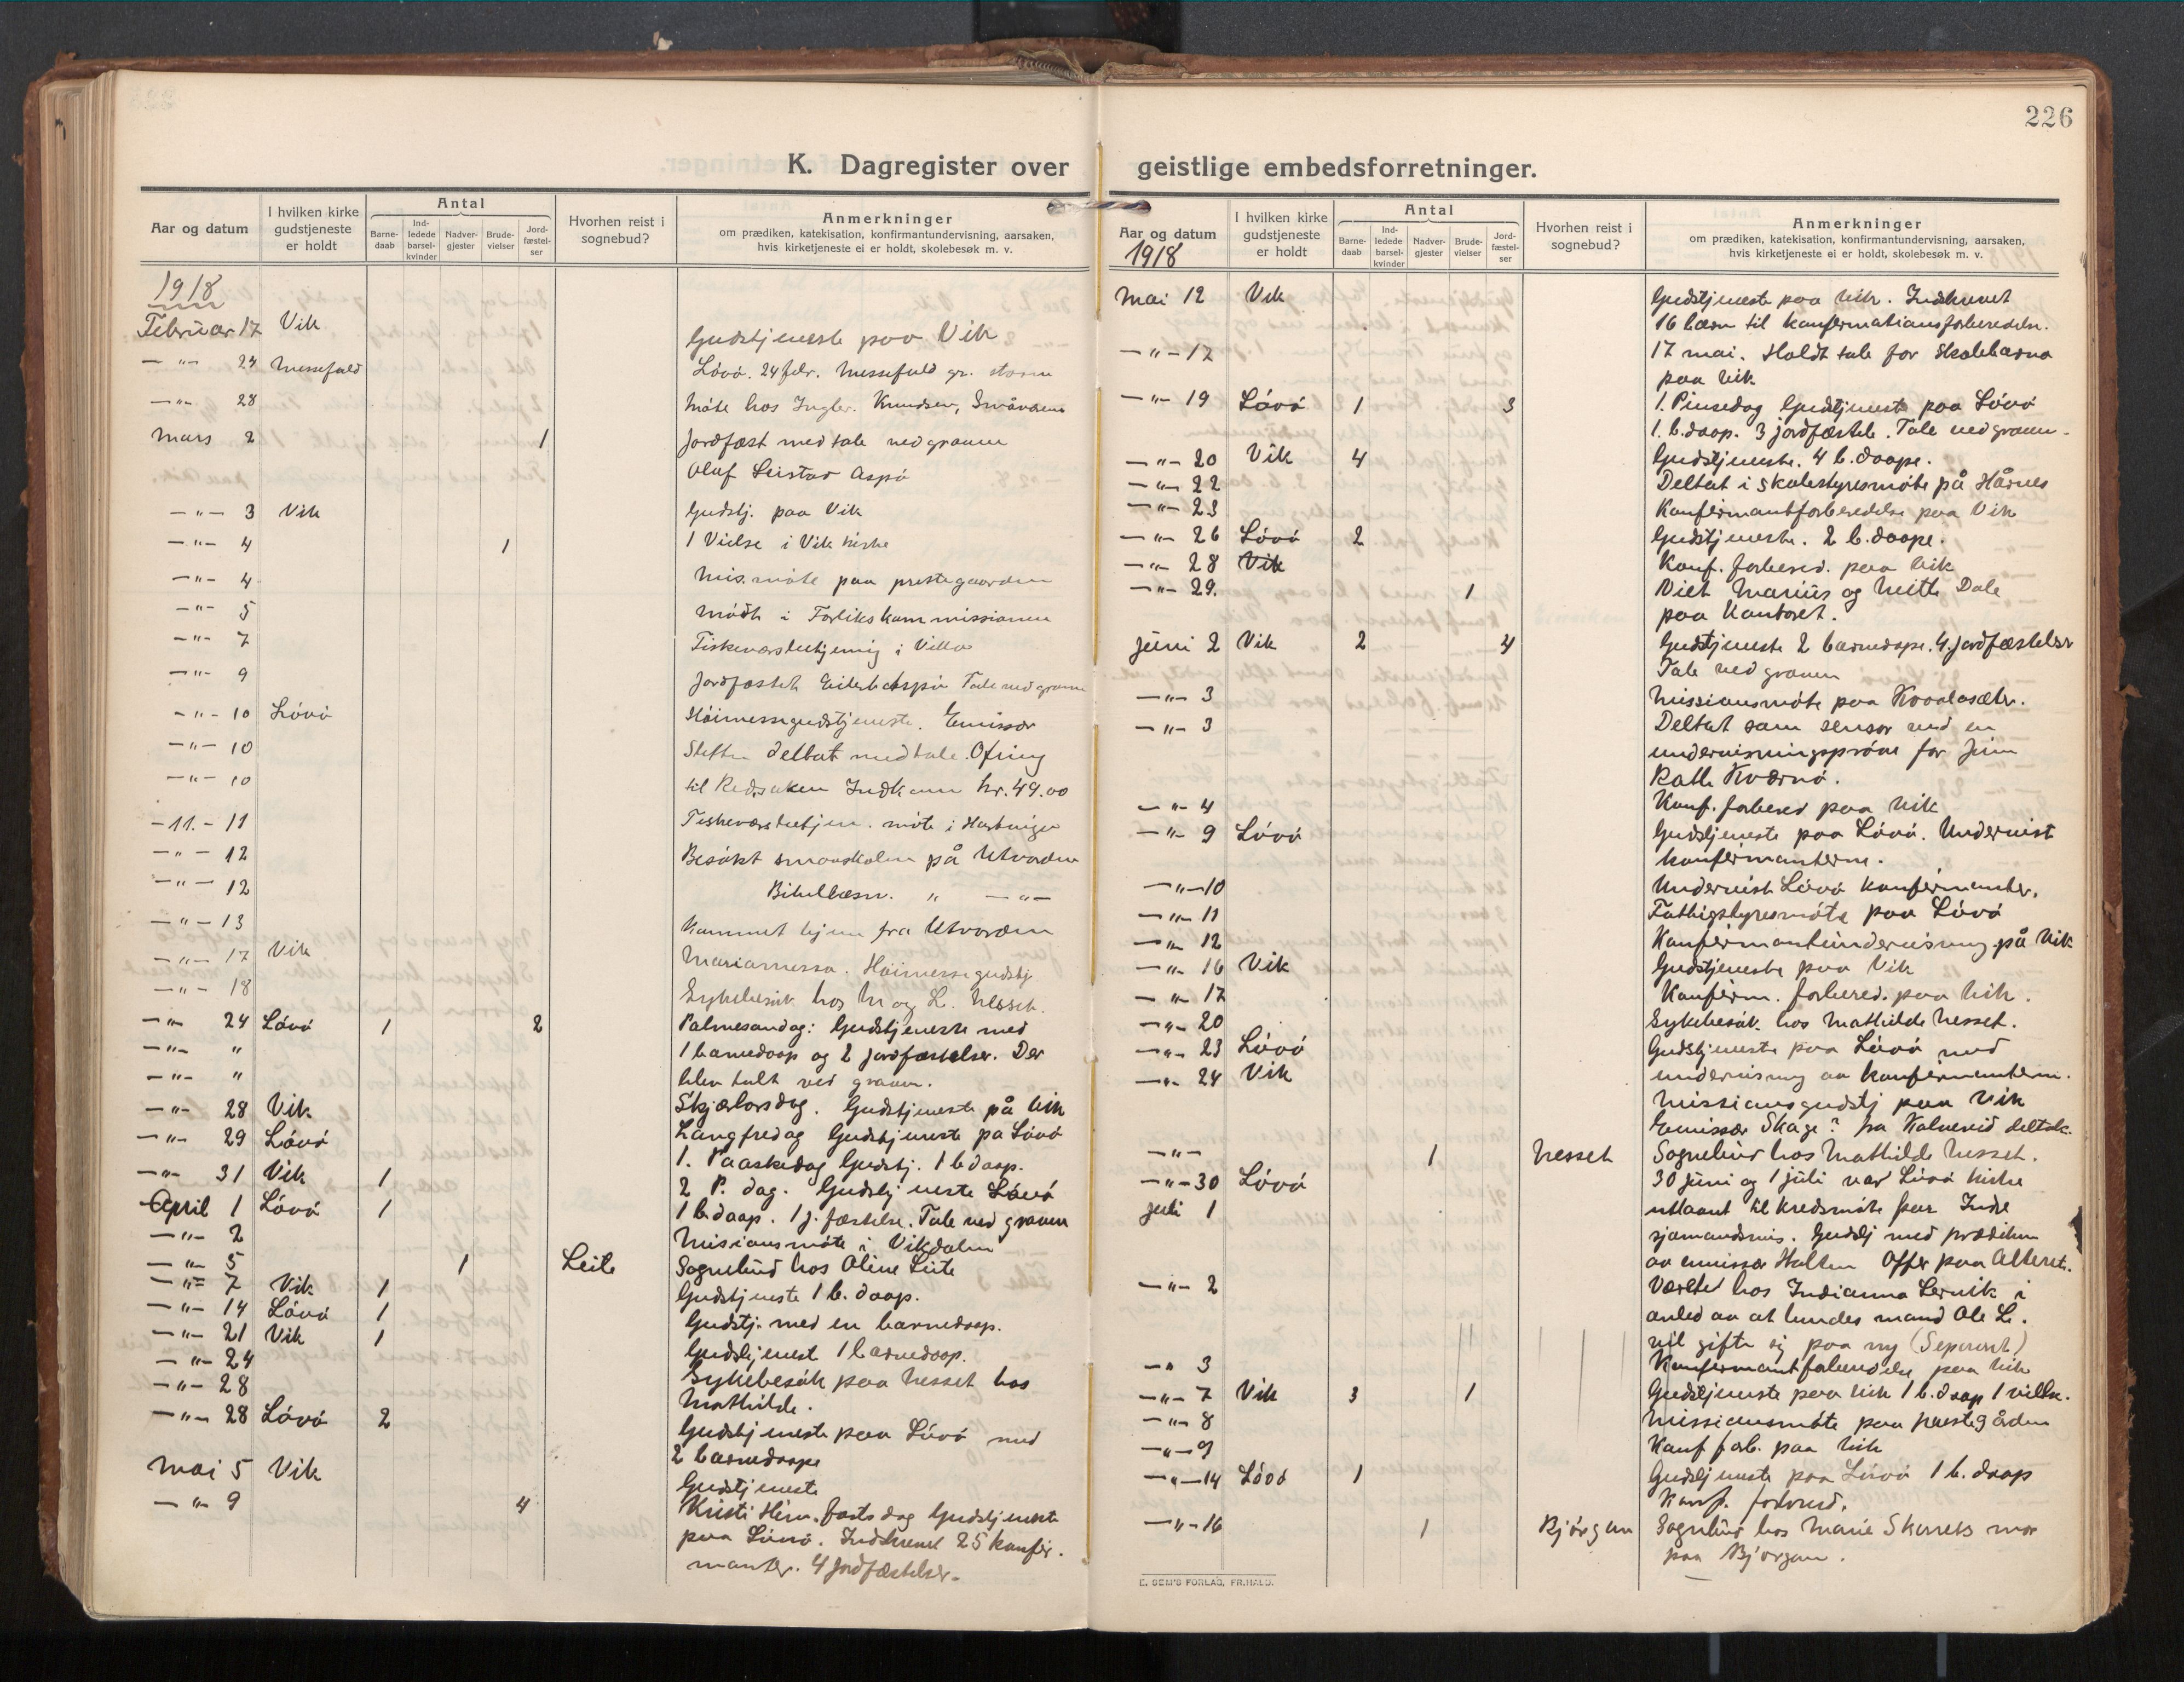 226
K. Dagregister over geistlige embedsforretninger.
Aar og datum
I hvilken kirke gudstjeneste er holdt
Antal
Barne-daab
Ind-ledede barsel-kvinder
Nadver-gjester
Brude-vielser
Jord-fæstel-ser
Hvorhen reist i sognebud?
Anmerkninger
om prædiken, katekisation, konfirmantundervisning, aarsaken,
hvis kirketjeneste ei er holdt, skolebesøk m. v.
1918
Februar 17 Vik Gudstjeneste paa Vik
— " — 24 Messefald Lövö. 24 febr. Messefald gr. storm
— " — 28 Möte hos Knudsen,
Mars 2 1 Jordfæst med tale ved graven
Oluf Leistad Aspö
— " — 3 Vik Gudstj. paa Vik
— " — 4 1 1 Vielse i Vik kirke
— " — 4 Mis.möte paa prestegaarden
— " — 5 Mödte i Forlikskommissionen
— " — 7 i
— " — 9 Jordfæstet Tale ved graven
— " — 10 Lövö Höimessegudstjeneste. Emissær
— " — 10 deltat med tale. Ofring
— " — 10 til kr. 49.00
— 11. — 11 möte i
— " — 12 Besökt smaaskolen på Utvorden
— " — 12 Bibellæsn. " — " —
— " — 13 Kommet hjem fra Utvorden
— " — 17 Vik Mariamessa. Höimessegudstj.
— " — 18 Sykebesök hos M og L. Nesset.
— " — 24 Lövö 1 2 Palmesøndag: Gudstjeneste med
— " — " 1 barnedaap og 2 jordfæstelser. Der
— " — " blev talt ved graven.
— " — 28 Vik Skjærtorsdag. Gudstjeneste på Vik
— " — 29 Lövö Langfredag Gudstjeneste på Lövö
— " — 31 Vik 1 1. Paaskedag Gudstj. 1 b. daap.
April 1 Lövö 1 2 P. dag. Gudstjeneste Lövö
1 b. daap. 1 j. fæstelse. Tale ved graven
— " — 2 Misionsmöte i Vikdalen
— " — 5 1 Leite Sognebud hos Oline Leite
— " — 7 Vik 1 Gudstjeneste 1 b. daap.
— " — 14 Lövö 1 Gudstj. med en barnedaap.
— " — 21 Vik 1 Gudstjenest 1 barnedaap.
— " — 24 Sykebesök paa Nesset hos
— " — 28 Mathilde.
— " — 28 Lövö 2 Gudstjeneste paa Lövö med
2 barnedaape
Mai 5 Vik Gudstjeneste
— " — 9 4 Kristi Him.fartsdag Gudstjeneste
paa Lövö. Indskrevet 25 konfir-
manter. 4 jordfæstelser.
Aar og datum
1918
I hvilken kirke gudstjeneste er holdt
Antal
Barne-daab
Ind-ledede barsel-kvinder
Nadver-gjester
Brude-vielser
Jord-fæstel-ser
Hvorhen reist i sognebud?
Anmerkninger
om prædiken, katekisation, konfirmantundervisning, aarsaken,
hvis kirketjeneste ei er holdt, skolebesøk m. v.
Mai 12 Vik Gudstjeneste paa Vik. Indskrevet
16 børn til konfirmationsforberedelse.
— " — 17 17 mai. Holdt tale for skolebarna
paa Vik
— " — 19 Lövö 1 3 1. Pinsedag Gudstjeneste paa Lövö
1. b. daap. 3 jordfæstels. Tale ved graven.
— " — 20 Vik 4 Gudstjeneste. 4 b. daape.
— " — 22 Deltat i Skolestyresmöte på Hårnes
— " — 23 Konfirmantforberedelse paa Vik
— " — 26 Lövö 2 Gudstjeneste. 2 b. daape.
— " — 28 Vik Konf. forbered. paa Vik
— " — 29. 1 Viet Marius og Mette Dale
paa Kontoret.
Juni 2 Vik 2 4 Gudstjeneste 2 barnedape. 4 jordfæstelser
Tale ved graven
— " — 3 Missionsmöte paa
— " — 3 Deltat som sensor ved en
undervisningspröve for
Kværnö.
— " — 4 Konf. forbered paa Vik
— " — 9 Lövö Gudstjeneste paa Lövö. Undervist
konfirmanterne.
— " — 10 Undervist Lövö konfirmanter.
— " — 11 Fattigstyresmöte paa Lövö
— " — 12 Konfirmantundervisning på Vik
— " — 16 Vik Gudstjeneste paa Vik
— " — 17 Konfirm. forbered. paa Vik.
— " — 20 Sykebesök hos Mathilde Nesset.
— " — 23 Lövö Gudstjeneste paa Lövö med
undervisning av konfirmantern.
— " — 24 Vik Missionsgudstj paa Vik
Emissær Skage? fra deltok.
— " — 1 Nesset Sognebud hos Mathilde Nesset.
— " — 30 Lövö 30 juni og 1 juli var Lövö kirke
Juli 1 utlaant til kredsmöte for Indre
sjømandsmis. Gudstj med prædiken
av emissær Holten Offer paa Alteret.
— " — 2 Været hos Indianna Lervik i
anled av at hendes mand Ole L.
vil gifte sig paa ny (Separert)
— " 3 Konfirmantforberedelse paa Vik
— " — 7 Vik 3 1 Gudstjeneste paa Vik 1 b. daap 1 vielse.
— " — 8 Missionsmöte paa prestegården
— " — 9 Konf forb. paa Vik
— " — 14 Lövö 1 Gudstjeneste paa Lövö 1 b. daap
Konf. forbered.
— " — 16 1 Bjørgan Sognebud hos Marie mor
paa Bjørgan.
E. SEM'S FORLAG, FR.HALD.